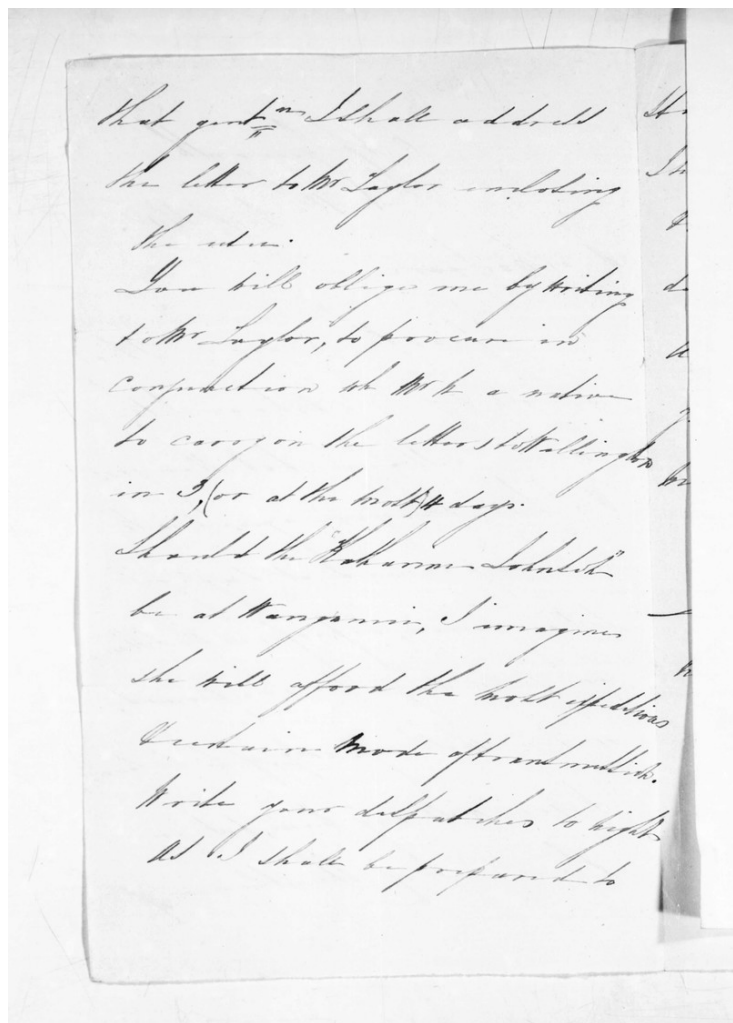 that gentn I shall address
the letter to Mr Taylor enclosing
the
You will oblige me by writing
to Mr Taylor, to procure in
conjunction wh Mr K a native
to carry on the letters to Wellington
in 3, (or at the most) 4 days.
Should the "Katharine Johnston"
be at Wanganui, I imagine
she will afford the most expeditious
& certain mode of transmission.
Write your despatches to night
as I shall be prepared to